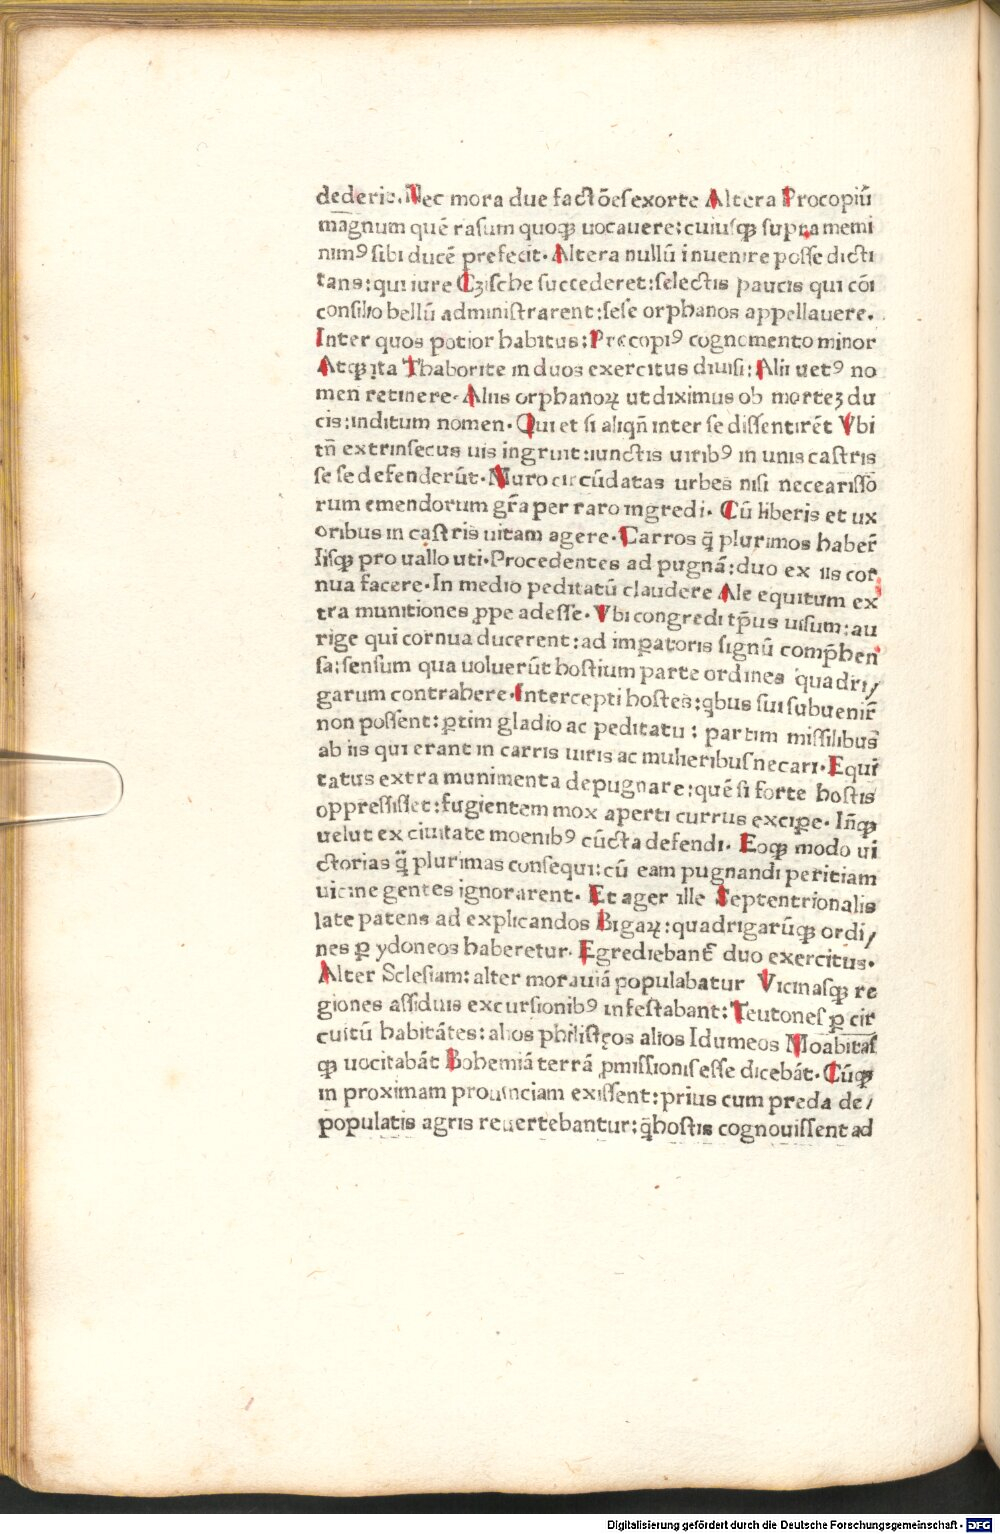 dederit. Nec mora due factões exorte Altera Procopiũ
magnum quē rasum quoqꝫ uocauere: cuiusqꝫ supra memi
nimꝰ sibi ducē prefecit. Altera nullū inuenire posse dicti
tans: qui iure Czische succederet: selectis paucis qui cōi
consilio bellū administrarent: sese orphanos appellauere.
Inter quos potior habitus: Precopiꝰ cognomento minor
Atqꝫ ita Thaborite in duos exercitus diuisi: Alii uetꝰ no
men retinere. Aliis orphanoꝝ ut diximus ob morteꝫ du
cis: inditum nomen. Qui et si aliqñ inter se dissentirēt Vbi
tñ extrinsecus uis ingruit: iunctis uiribꝰ in unis castris
se se defenderūt. Muro circūdatas urbes nisi necearissō
rum emendorum gr̃a per raro ingredi. Cū liberis et ux
oribus in castris uitam agere. Carros q̃ plurimos haber̃
Iisqꝫ pro uallo uti. Procedentes ad pugnā: duo ex iis cor
nua facere. In medio peditatū claudere Ale equitum ex
tra munitiones ꝓpe adesse. Vbi congredi tp̄us uisum: au
rige qui cornua ducerent: ad imꝑatoris signū comp̄hen
sa: sensum qua uoluerūt hostium parte ordines quadri/
garum contrahere. Intercepti hostes: qbus sui subuenir̃
non possent: ꝑtim gladio ac peditatu: partim missilibus
ab iis qui erant in carris uiris ac mulieribus necari. Equi
tatus extra munimenta depugnare: quē si forte hostis
oppressisset: fugientem mox aperti currus exciꝑe. Iñqꝫ
uelut ex ciuitate moenibꝰ cūcta defendi. Eoqꝫ modo ui
ctorias q̃ plurimas consequi: cū eam pugnandi peritiam
uicine gentes ignorarent. Et ager ille Septentrionalis
late patens ad explicandos Bigaꝝ: quadrigarūqꝫ ordi/
nes ꝑ ydoneos haberetur. Egrediebant̃ duo exercitus.
Alter Sclesiam: alter morauiā populabatur Vicinasqꝫ re
giones assiduis excursionibꝰ infestabant: Teutones ꝑ cir
cuitū habitātes: alios philistęos alios Idumeos Moabitas
qꝫ uocitabāt Bohemiā terrā ꝓmissionis esse dicebāt. Cūqꝫ
in proximam prouinciam exissent: prius cum preda de/
populatis agris reuertebantur: q̃ hostis cognouissent ad
Digitalisierung gefördert durch die Deutsche Forschungsgemeinschaft - DFG